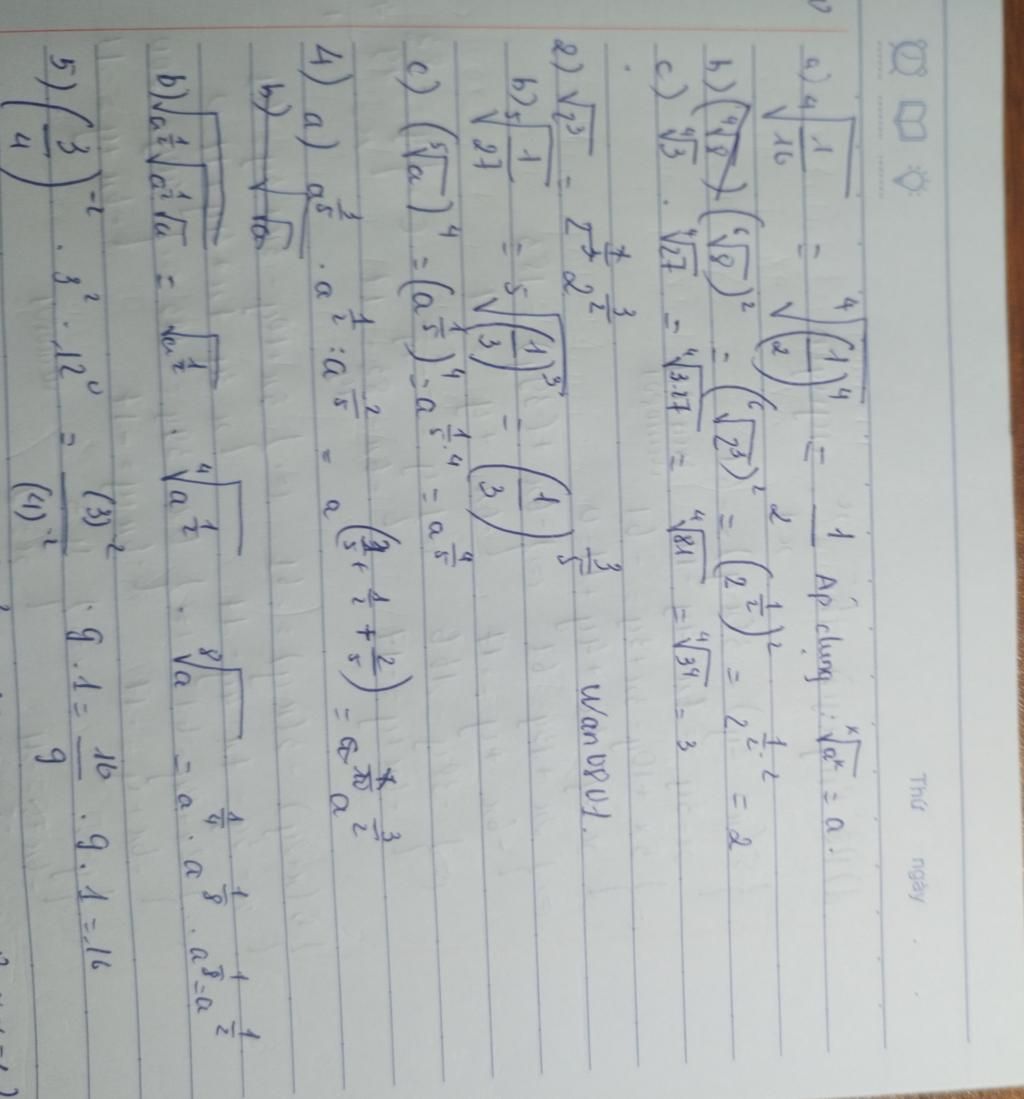 Thứ ngày
a) ⁴√(1/16) = ⁴√((1/2)⁴) = 1/2 Áp dụng : ˣ√aˣ = a.
b) (⁶√8)² = (⁶√2³)² = (2^(1/2))² = 2^(1/2 · 2) = 2
c) ⁴√3 . ⁴√27 = ⁴√3.27 = ⁴√81 = ⁴√3⁴ = 3
2) √2³ = 2^(3/2) Wan0801.
b) ⁵√(1/27) = ⁵√((1/3)³) = (1/3)^(3/5)
c) (⁵√a)⁴ = (a^(1/5))⁴ = a^(1/5 · 4) = a^(4/5)
4) a) a^(3/5) . a^(1/2) : a^(2/5) = a^(3/5 + 1/2 + 2/5) = a^(3/2)
b) √√a
b) √(a^(1/2) √(a^(1/2) √a)) = √(a^(1/2)) . ⁴√(a^(1/2)) . ⁸√a = a^(1/4) . a^(1/8) . a^(1/8) = a^(1/2)
5) (3/4)⁻² . 3² . 12⁰ = (3)⁻²/(4)⁻² . 9 . 1 = 16/9 . 9 . 1 = 16